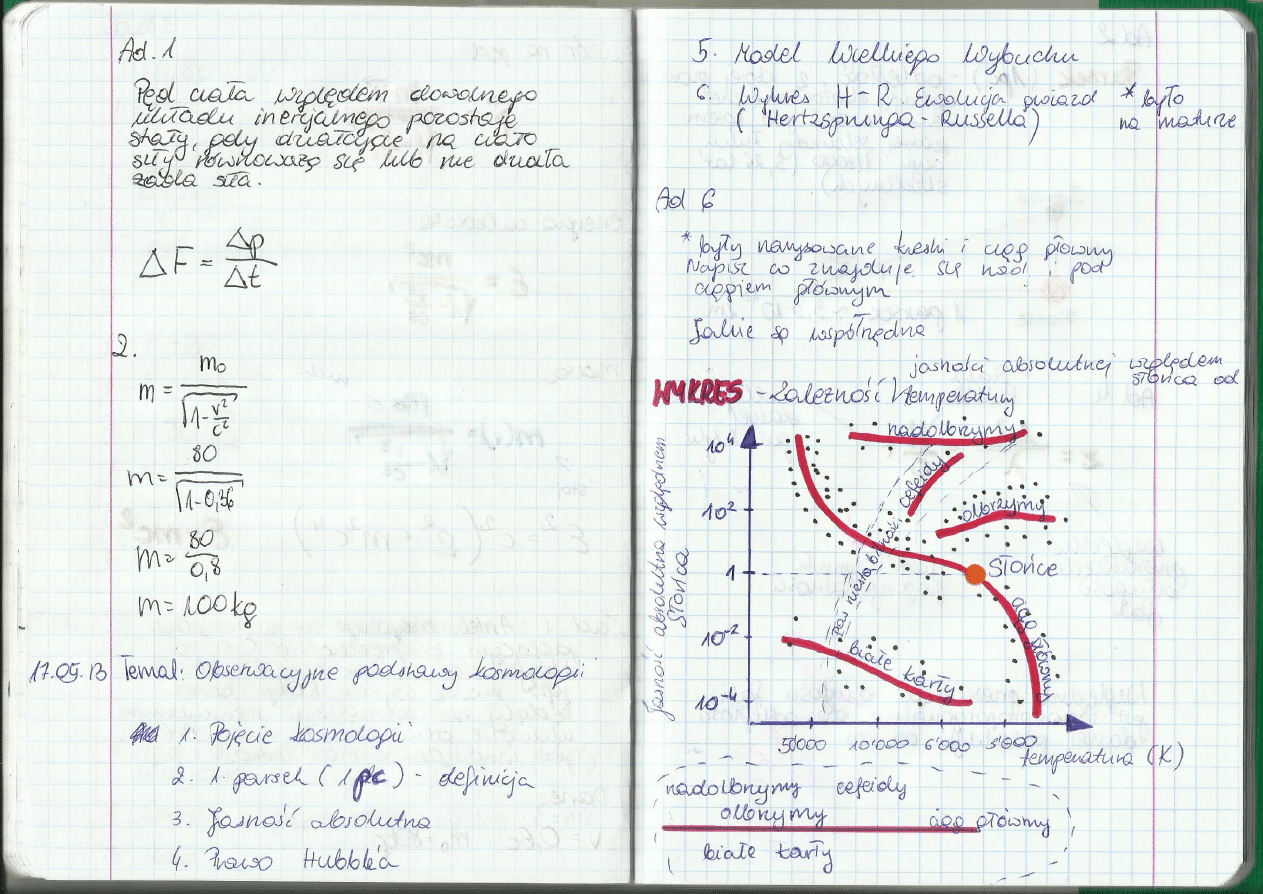 Ad. 1
Pęd ciała względem dowolnego
układu inercjalnego pozostaje
stały, gdy działające na ciało
siły równoważą się lub nie działa
żadna siła.
ΔF = Δp / Δt
2.
m = m₀ / √(1 - v²/c²)
m = 80 / √(1 - 0,36)
m = 80 / 0,8
m = 100 kg
17.09.13 Temat: Obserwacyjne podstawy kosmologii
1. Pojęcie kosmologii
2. 1 parsek (1 pc) - definicja
3. Jasność absolutna
4. Prawo Hubble'a
5. Model Wielkiego Wybuchu
6. Wykres H-R. Ewolucja gwiazd
(Hertzsprunga - Russella)
* było
na maturze
Ad 6
* były narysowane kreski i ciąg główny
Napisz co znajduje się nad i pod
ciągiem głównym
Jakie są współrzędne
WYKRES - Zależność jasności absolutnej względem
Słońca od
temperatury
Jasność absolutna względem
Słońca
10⁴
10²
1
10⁻²
10⁻⁴
nadolbrzymy
cefeidy
olbrzymy
Słońce
pas niestabilności
ciąg główny
białe karły
50'000 10'000 6'000 3'000
temperatura (K)
nadolbrzymy cefeidy
olbrzymy
ciąg główny
białe karły